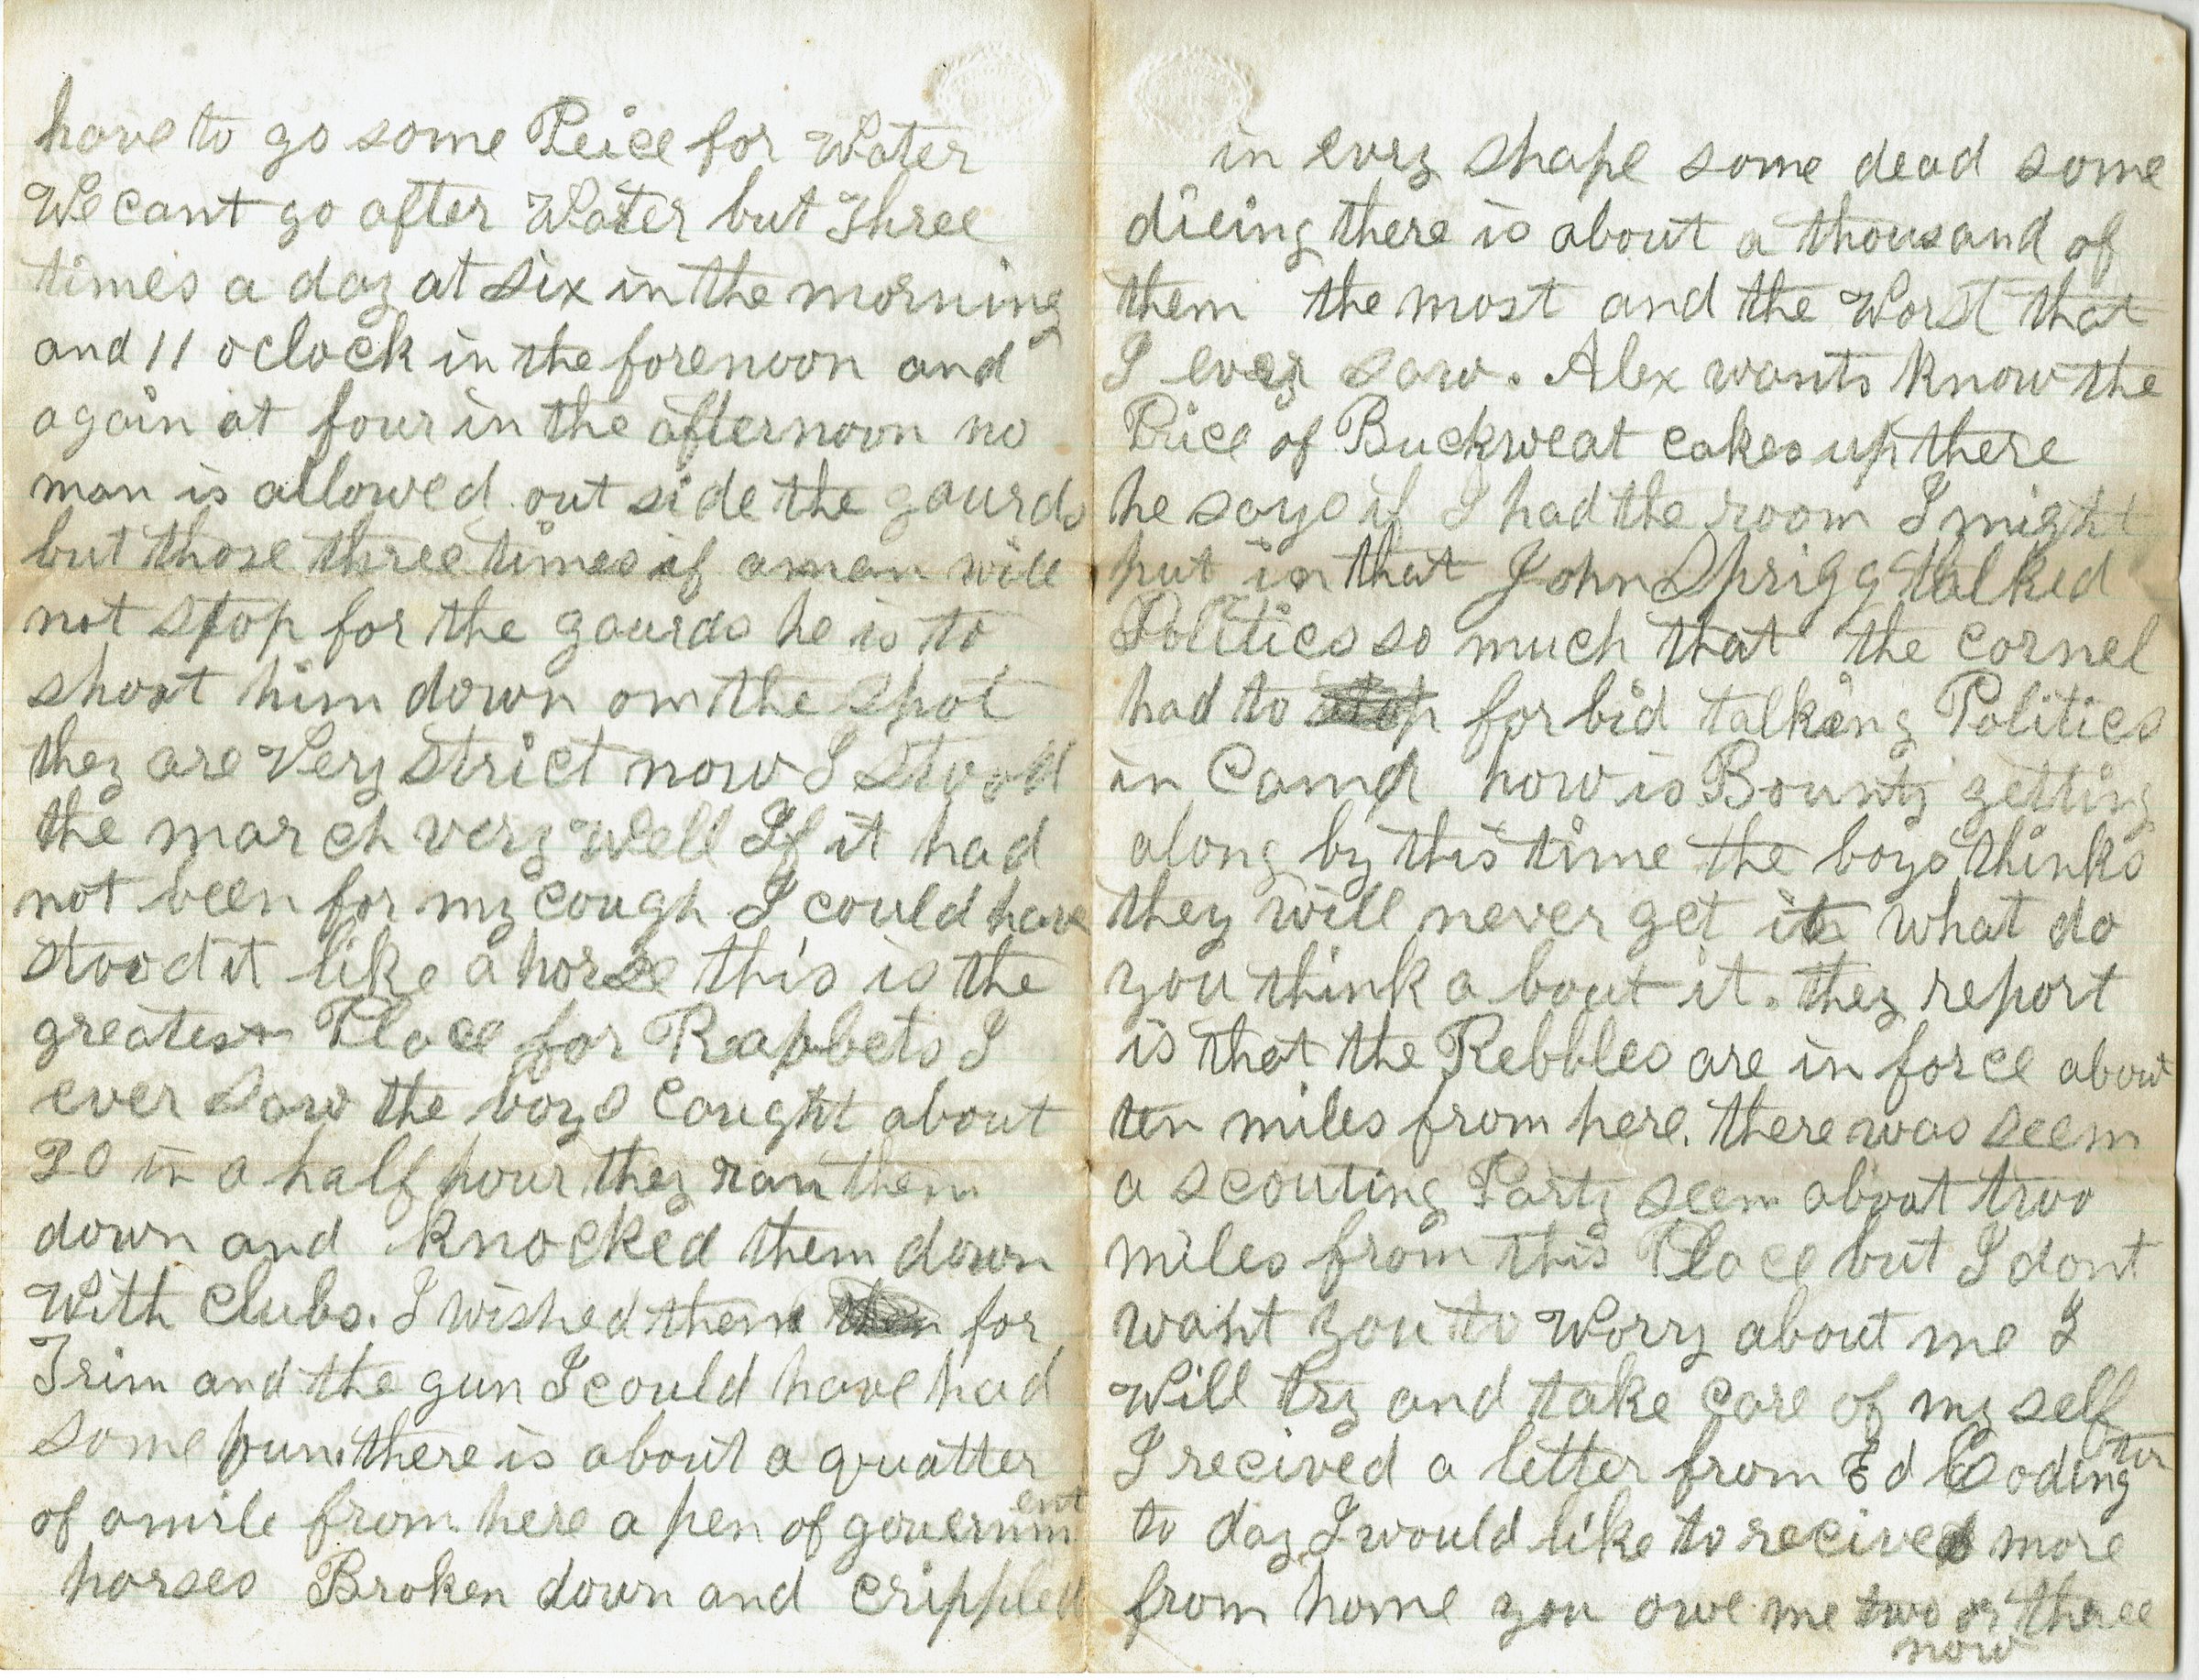 have to go some Peice for Water
We cant go after Water but Three
times a day at six in the morning
and 11 oclock in the forenoon and
again at four in the afternoon no
man is allowed out side the gaurds
but those three times if a man will
not stop for the gaurds he is to
shoot him down on the spot
they are Very strict now I stood
the march very Well If it had
not been for my cough I could have
stood it like a horse this is the
greatest Place for Rabbets I
ever saw the boys caught about
20 in a half hour they ran them
down and knocked them down
With clubs. I wished them for
Trim and the gun I could have had
some fun. there is about a quatter
of a mile from here a pen of government
horses Broken down and crippled
in evry shape some dead some
dieing there is about a thousand of
them the most and the Worst that
I ever saw. Alex wants know the
Price of Buckweat cakes up there
he says if I had the room I might
put in that John Sprigg talked
Politics so much that the cornel
had to stop for bid talking Politics
in Camp how is Bounty getting
along by this time the boys thinks
they will never get it what do
you think a bout it. they report
is that the Rebbles are in force about
ten miles from here. there was seem
a scouting Party seem about two
miles from this Place but I dont
want you to Worry about me I
Will try and take care of my self
I recived a letter from Ed Codington
to day I would like to recive more
from home you owe me two or three
now